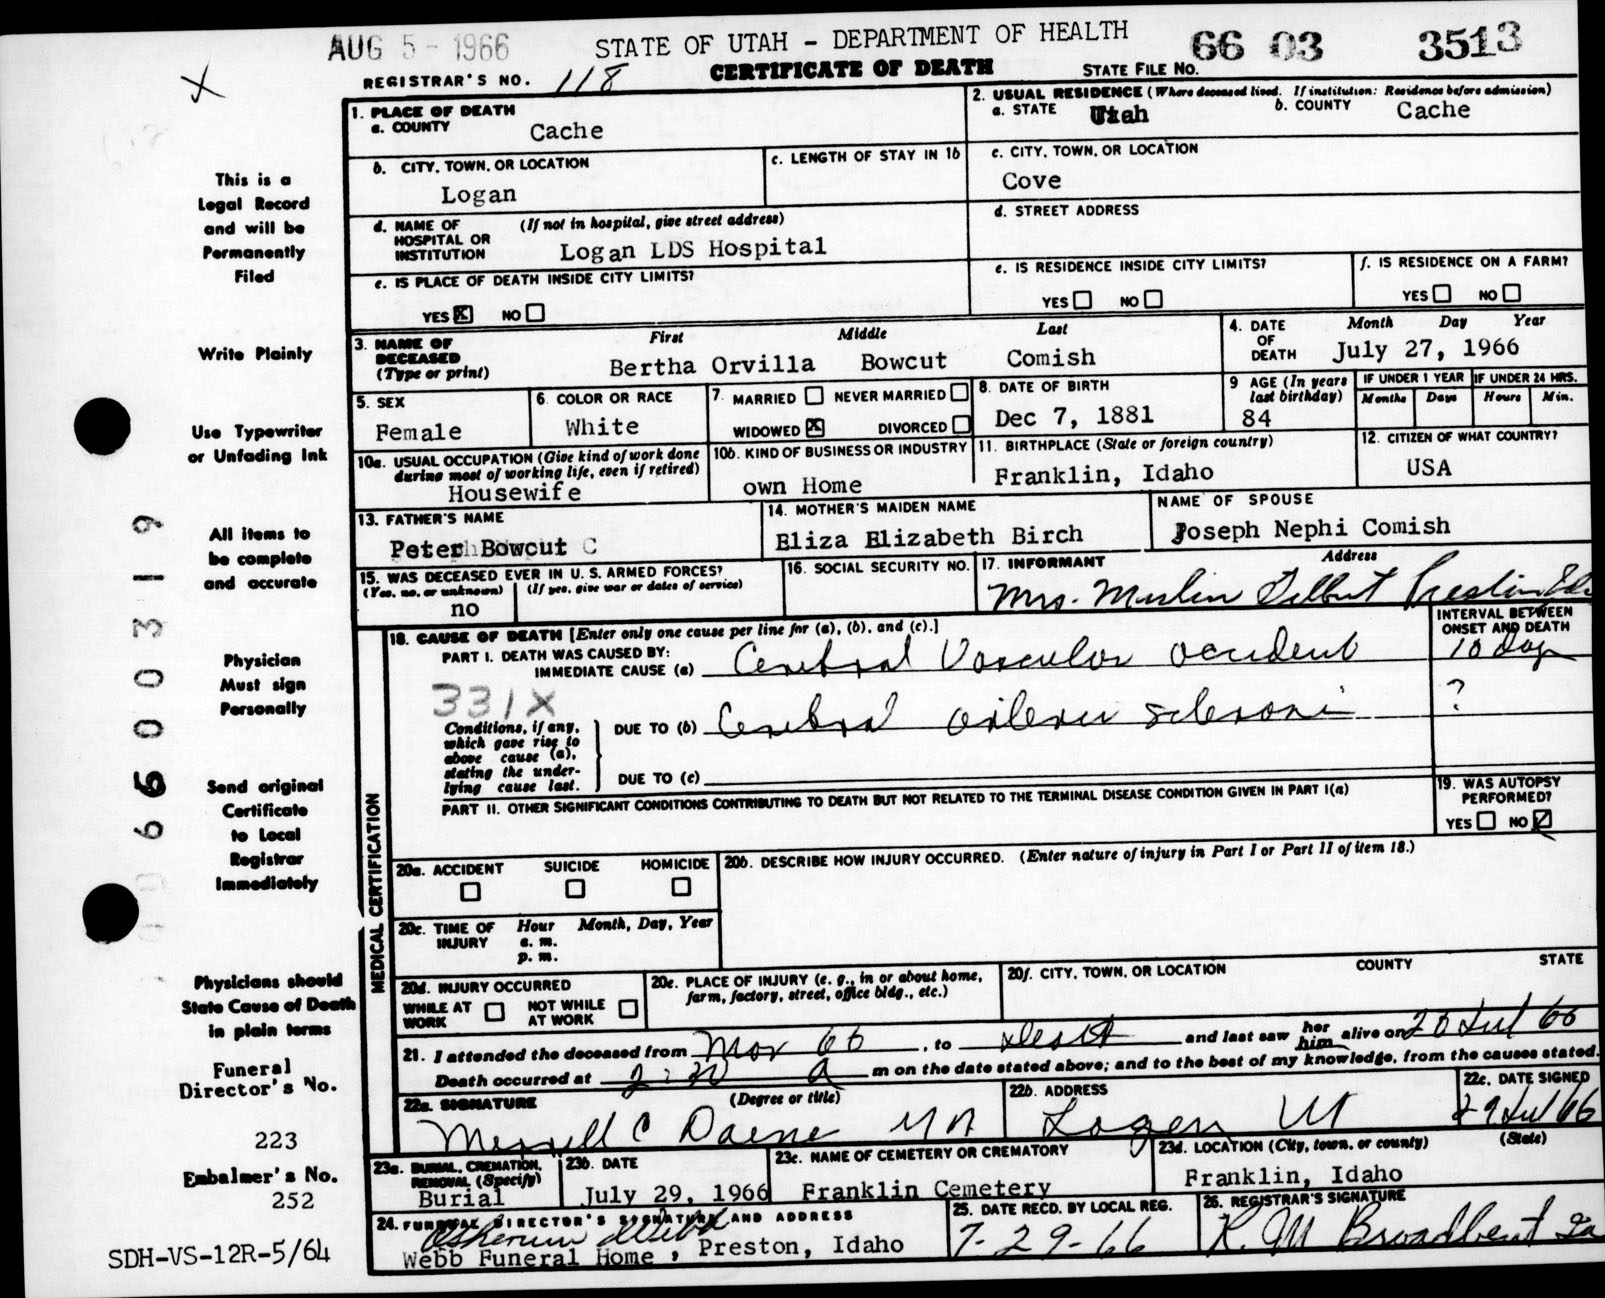 AUG 5 - 1966
STATE OF UTAH - DEPARTMENT OF HEALTH
66 03 3513
REGISTRAR'S NO. 118
CERTIFICATE OF DEATH
STATE FILE NO.
X
This is a
Legal Record
and will be
Permanently
Filed
Write Plainly
Use Typewriter
or Unfading Ink
All items to
be complete
and accurate
Physician
Must sign
Personally
Send original
Certificate
to Local
Registrar
Immediately
Physicians should
State Cause of Death
in plain terms
Funeral
Director's No.
223
Embalmer's No.
252
SDH-VS-12R-5/64
6600319
1. PLACE OF DEATH
a. COUNTY Cache
2. USUAL RESIDENCE (Where deceased lived. If institution: Residence before admission)
a. STATE Utah b. COUNTY Cache
b. CITY, TOWN, OR LOCATION
Logan
c. LENGTH OF STAY IN 1b
c. CITY, TOWN, OR LOCATION
Cove
d. NAME OF HOSPITAL OR INSTITUTION (If not in hospital, give street address)
Logan LDS Hospital
d. STREET ADDRESS
e. IS PLACE OF DEATH INSIDE CITY LIMITS?
YES X NO
e. IS RESIDENCE INSIDE CITY LIMITS?
YES NO
f. IS RESIDENCE ON A FARM?
YES NO
3. NAME OF DECEASED (Type or print)
First Middle Last
Bertha Orvilla Bowcut Comish
4. DATE OF DEATH Month Day Year
July 27, 1966
5. SEX
Female
6. COLOR OR RACE
White
7. MARRIED NEVER MARRIED
WIDOWED X DIVORCED
8. DATE OF BIRTH
Dec 7, 1881
9 AGE (In years last birthday)
84
IF UNDER 1 YEAR
Months Days
IF UNDER 24 HRS.
Hours Min.
10a. USUAL OCCUPATION (Give kind of work done
during most of working life, even if retired)
Housewife
10b. KIND OF BUSINESS OR INDUSTRY
own Home
11. BIRTHPLACE (State or foreign country)
Franklin, Idaho
12. CITIZEN OF WHAT COUNTRY?
USA
13. FATHER'S NAME
Peter Bowcut
14. MOTHER'S MAIDEN NAME
Eliza Elizabeth Birch
NAME OF SPOUSE
Joseph Nephi Comish
15. WAS DECEASED EVER IN U. S. ARMED FORCES?
(Yes, no, or unknown) (If yes, give war or dates of service)
no
16. SOCIAL SECURITY NO.
17. INFORMANT Address
Mrs. Merlin Gilbert Preston Ida
MEDICAL CERTIFICATION
18. CAUSE OF DEATH [Enter only one cause per line for (a), (b), and (c).]
INTERVAL BETWEEN
ONSET AND DEATH
PART I. DEATH WAS CAUSED BY:
IMMEDIATE CAUSE (a) Cerebral Vascular accident
10 days
331X
Conditions, if any,
which gave rise to
above cause (a),
stating the under-
lying cause last.
DUE TO (b) Cerebral
?
DUE TO (c)
PART II. OTHER SIGNIFICANT CONDITIONS CONTRIBUTING TO DEATH BUT NOT RELATED TO THE TERMINAL DISEASE CONDITION GIVEN IN PART I(a)
19. WAS AUTOPSY
PERFORMED?
YES NO ✓
20a. ACCIDENT SUICIDE HOMICIDE
20b. DESCRIBE HOW INJURY OCCURRED. (Enter nature of injury in Part I or Part II of item 18.)
20c. TIME OF INJURY Hour Month, Day, Year
a. m.
p. m.
20d. INJURY OCCURRED
WHILE AT WORK NOT WHILE AT WORK
20e. PLACE OF INJURY (e. g., in or about home,
farm, factory, street, office bldg., etc.)
20f. CITY, TOWN, OR LOCATION COUNTY STATE
21. I attended the deceased from Mar 66, to death and last saw her him alive on 26 Jul 66
Death occurred at 2:30 a m on the date stated above; and to the best of my knowledge, from the causes stated.
22a. SIGNATURE (Degree or title)
Merrill C Daines MD
22b. ADDRESS
Logan Ut
22c. DATE SIGNED
29 Jul 66
23a. BURIAL, CREMATION,
REMOVAL (Specify)
Burial
23b. DATE
July 29, 1966
23c. NAME OF CEMETERY OR CREMATORY
Franklin Cemetery
23d. LOCATION (City, town, or county) (State)
Franklin, Idaho
24. FUNERAL DIRECTOR'S SIGNATURE AND ADDRESS
Webb Funeral Home, Preston, Idaho
25. DATE RECD. BY LOCAL REG.
7-29-66
26. REGISTRAR'S SIGNATURE
R. M Broadbent